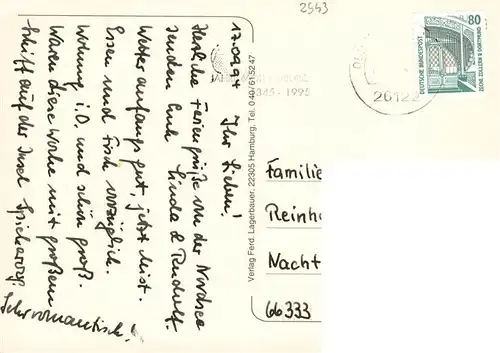 2543
17.09.94
Ihr Lieben!
Herzliche Feriengrüße von der Nordsee
senden Euch Linda & Rudolf.
Wetter anfangs gut, jetzt Mist.
Essen und Fisch vorzüglich.
Wohnung i.O. und schön groß.
Waren diese Woche mit großem
Schiff auf der Insel Spiekeroog.
Sehr romantisch!
Verlag Ferd. Lagerbauer, 22305 Hamburg, Tel. 0 40/61 52 47
1345-1995
26122
80
DEUTSCHE BUNDESPOST
ZECHE ZOLLERN II · DORTMUND
Familie
Reinh
Nacht
66333